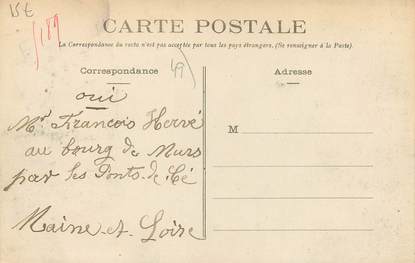 15€
189
CARTE POSTALE
La Correspondance du recto n'est pas acceptée par tous les pays étrangers. (Se renseigner à la Poste)
Correspondance
49
Adresse
oui
Mr Francois Hervé
au bourg de Murs
par les Ponts-de-Cé
Maine-et-Loire
M